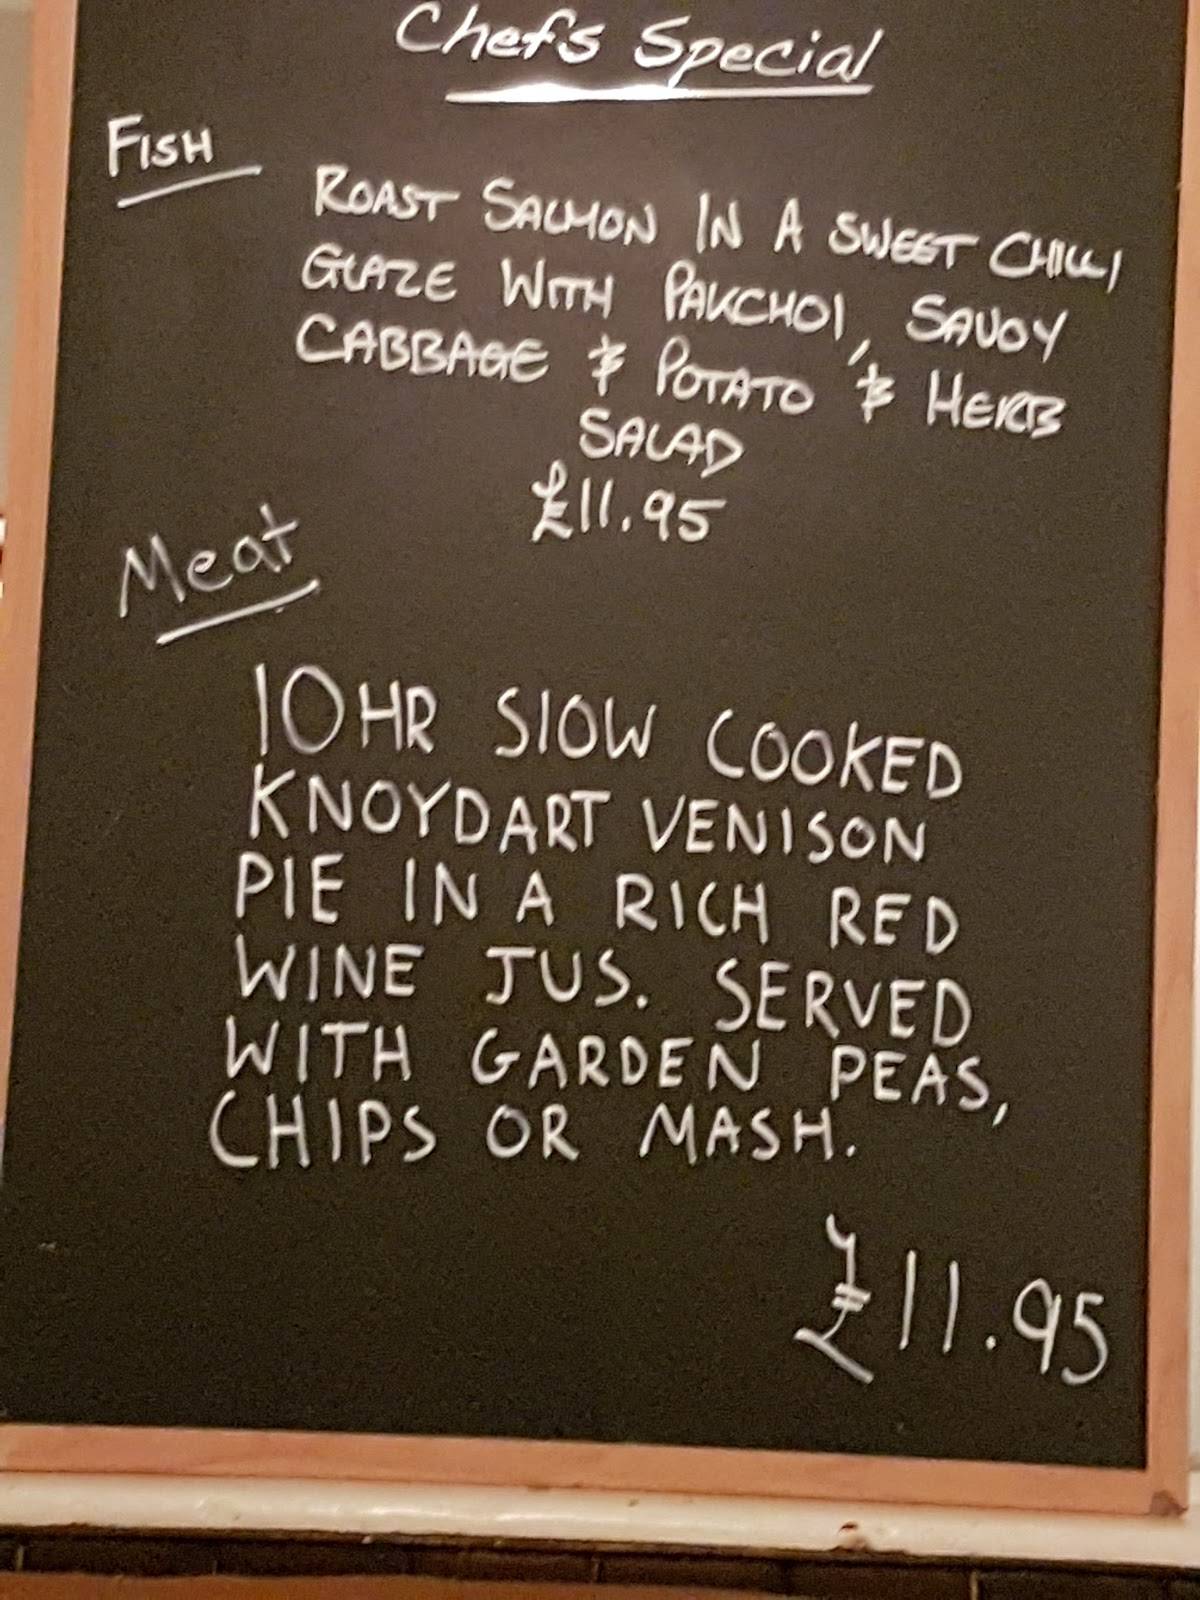 Chefs Special
FISH
ROAST SALMON IN A SWEET CHILLI
GLAZE WITH PAKCHOI, SAVOY
CABBAGE & POTATO & HERB
SALAD
£11.95
Meat
10HR SLOW COOKED
KNOYDART VENISON
PIE IN A RICH RED
WINE JUS. SERVED
WITH GARDEN PEAS,
CHIPS OR MASH.
£11.95